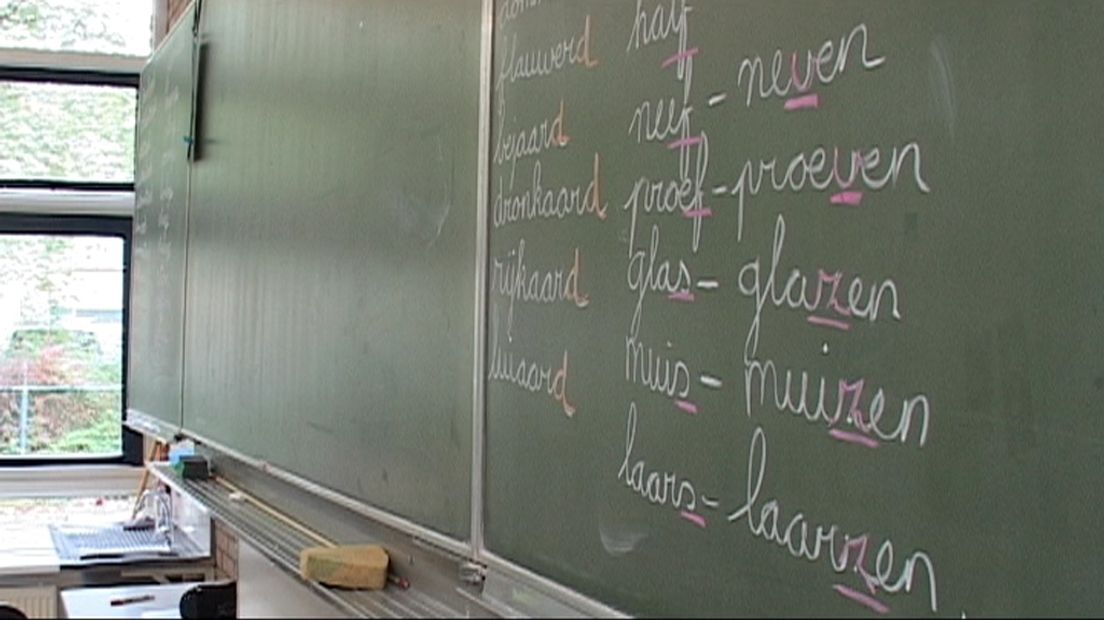 flauwerd
bejaard
dronkaard
rijkaard
luiaard
half
neef - neven
proef - proeven
glas - glazen
muis - muizen
laars - laarzen